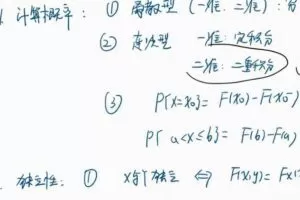 计算概率: ① 离散型 (一维, 二维): 分
② 连续型 一维: 定积分
二维: 二重积分
③ P{X=x₀} = F(x₀) - F(x₀⁻)
P{ a<X≤b} = F(b) - F(a)
独立性: ① X与Y独立 ⇔ F(x,y) = Fx(